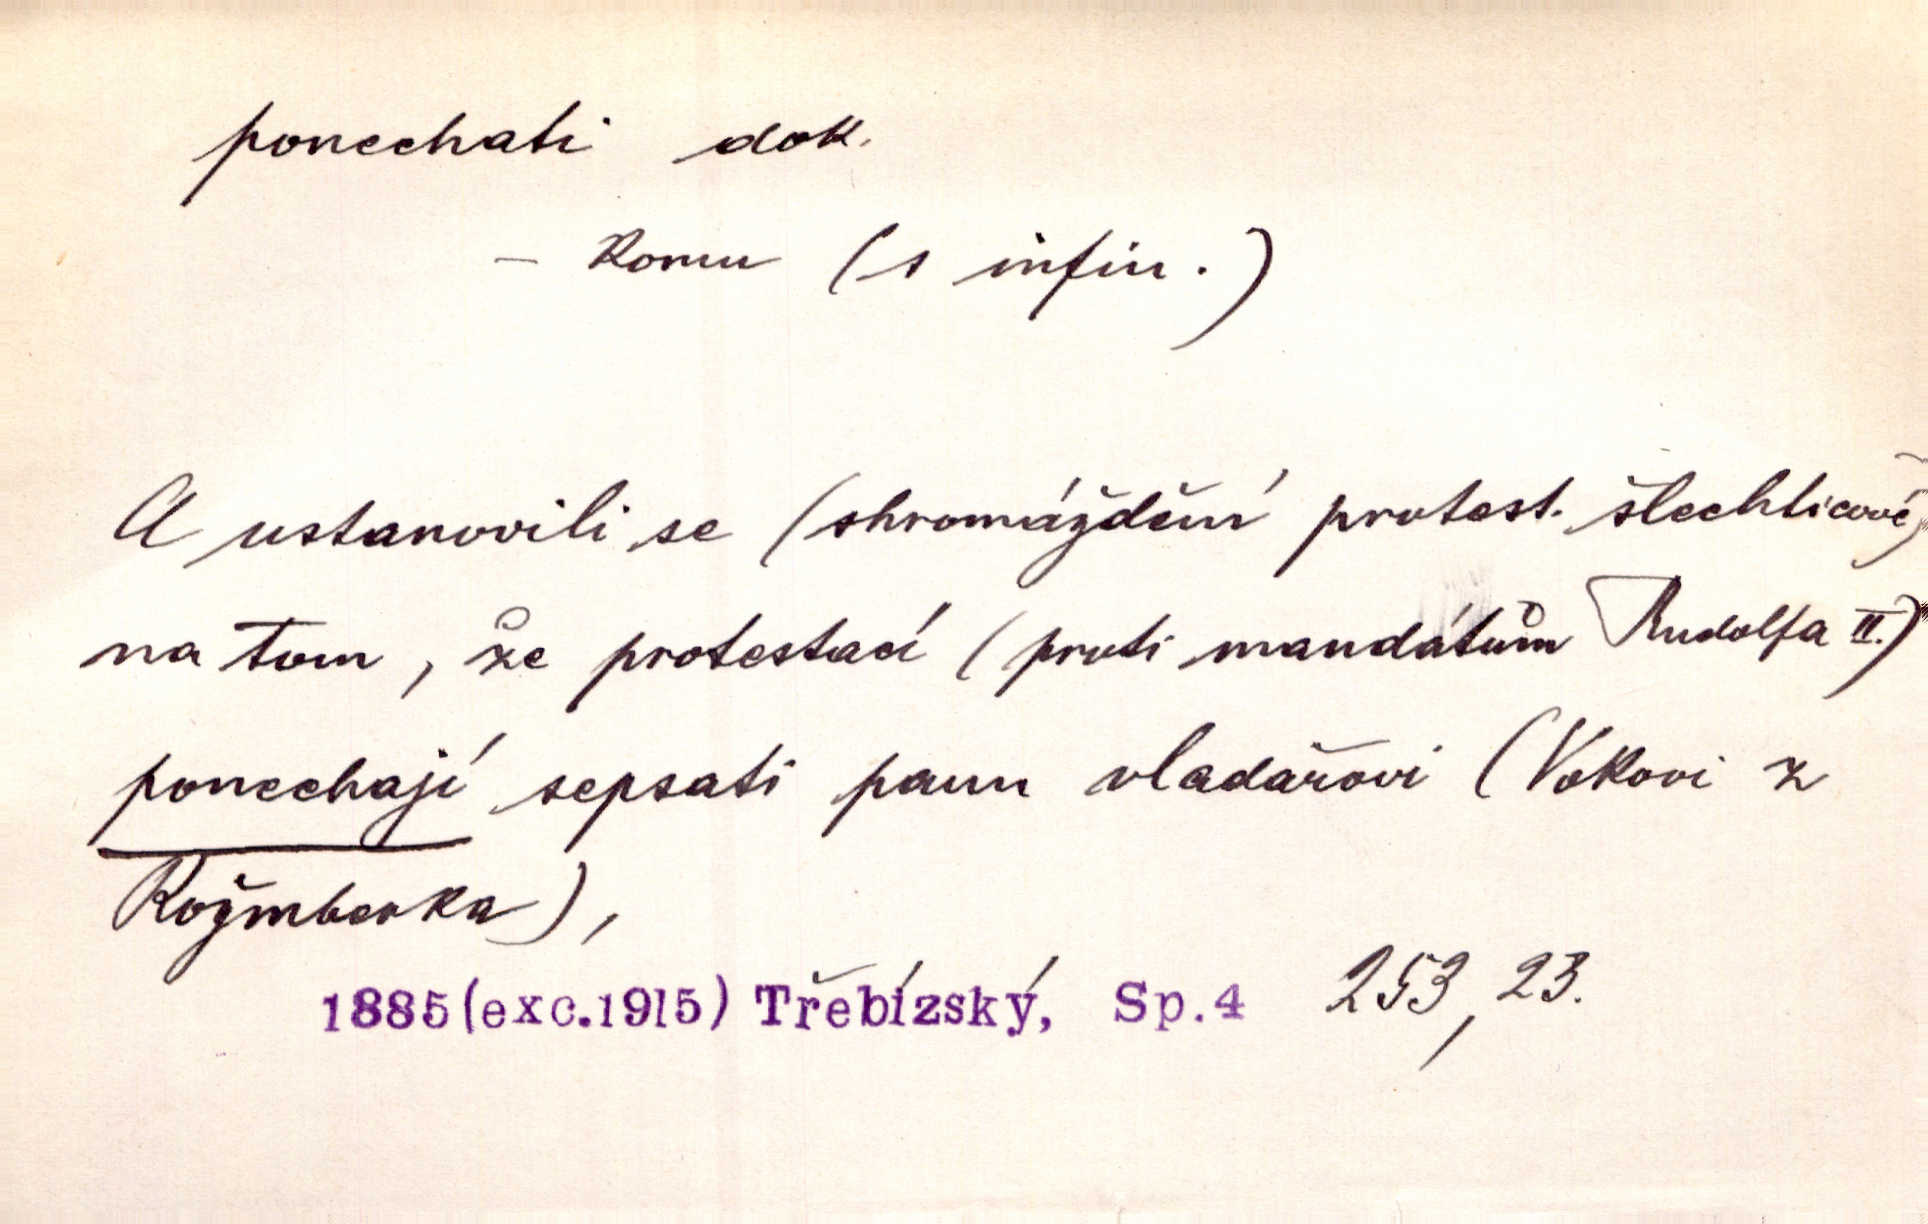 ponechati dok.
– komu (s infin.)
A ustanovili se (shromáždění protest. šlechticové)
na tom, že protestací (proti mandátům Rudolfa II.)
ponechají sepsati panu vladařovi (Vokovi z
Rožmberka),
1885 (exc. 1915) Třebízský, Sp. 4 253, 23.